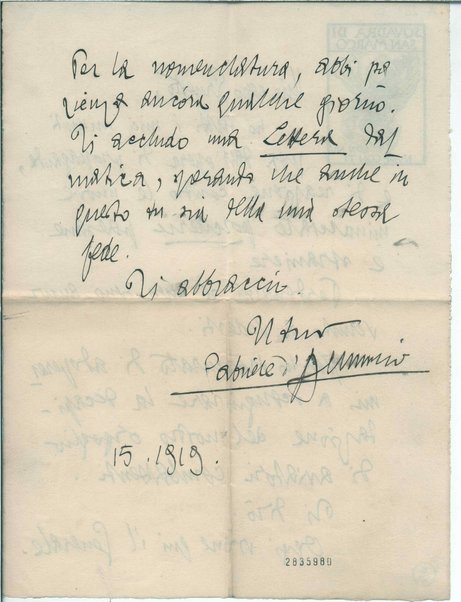 Per la nomenclatura, abbi pa
zienza ancóra qualche giorno.
Ti accludo una Lettera dal
matica, sperando che anche in
questo tu sia della mia stessa
fede.
Ti abbraccio.
Il tuo
Gabriele d'Annunzio
15.1919.
2835980
SQUADRA DI
SAN MARCO